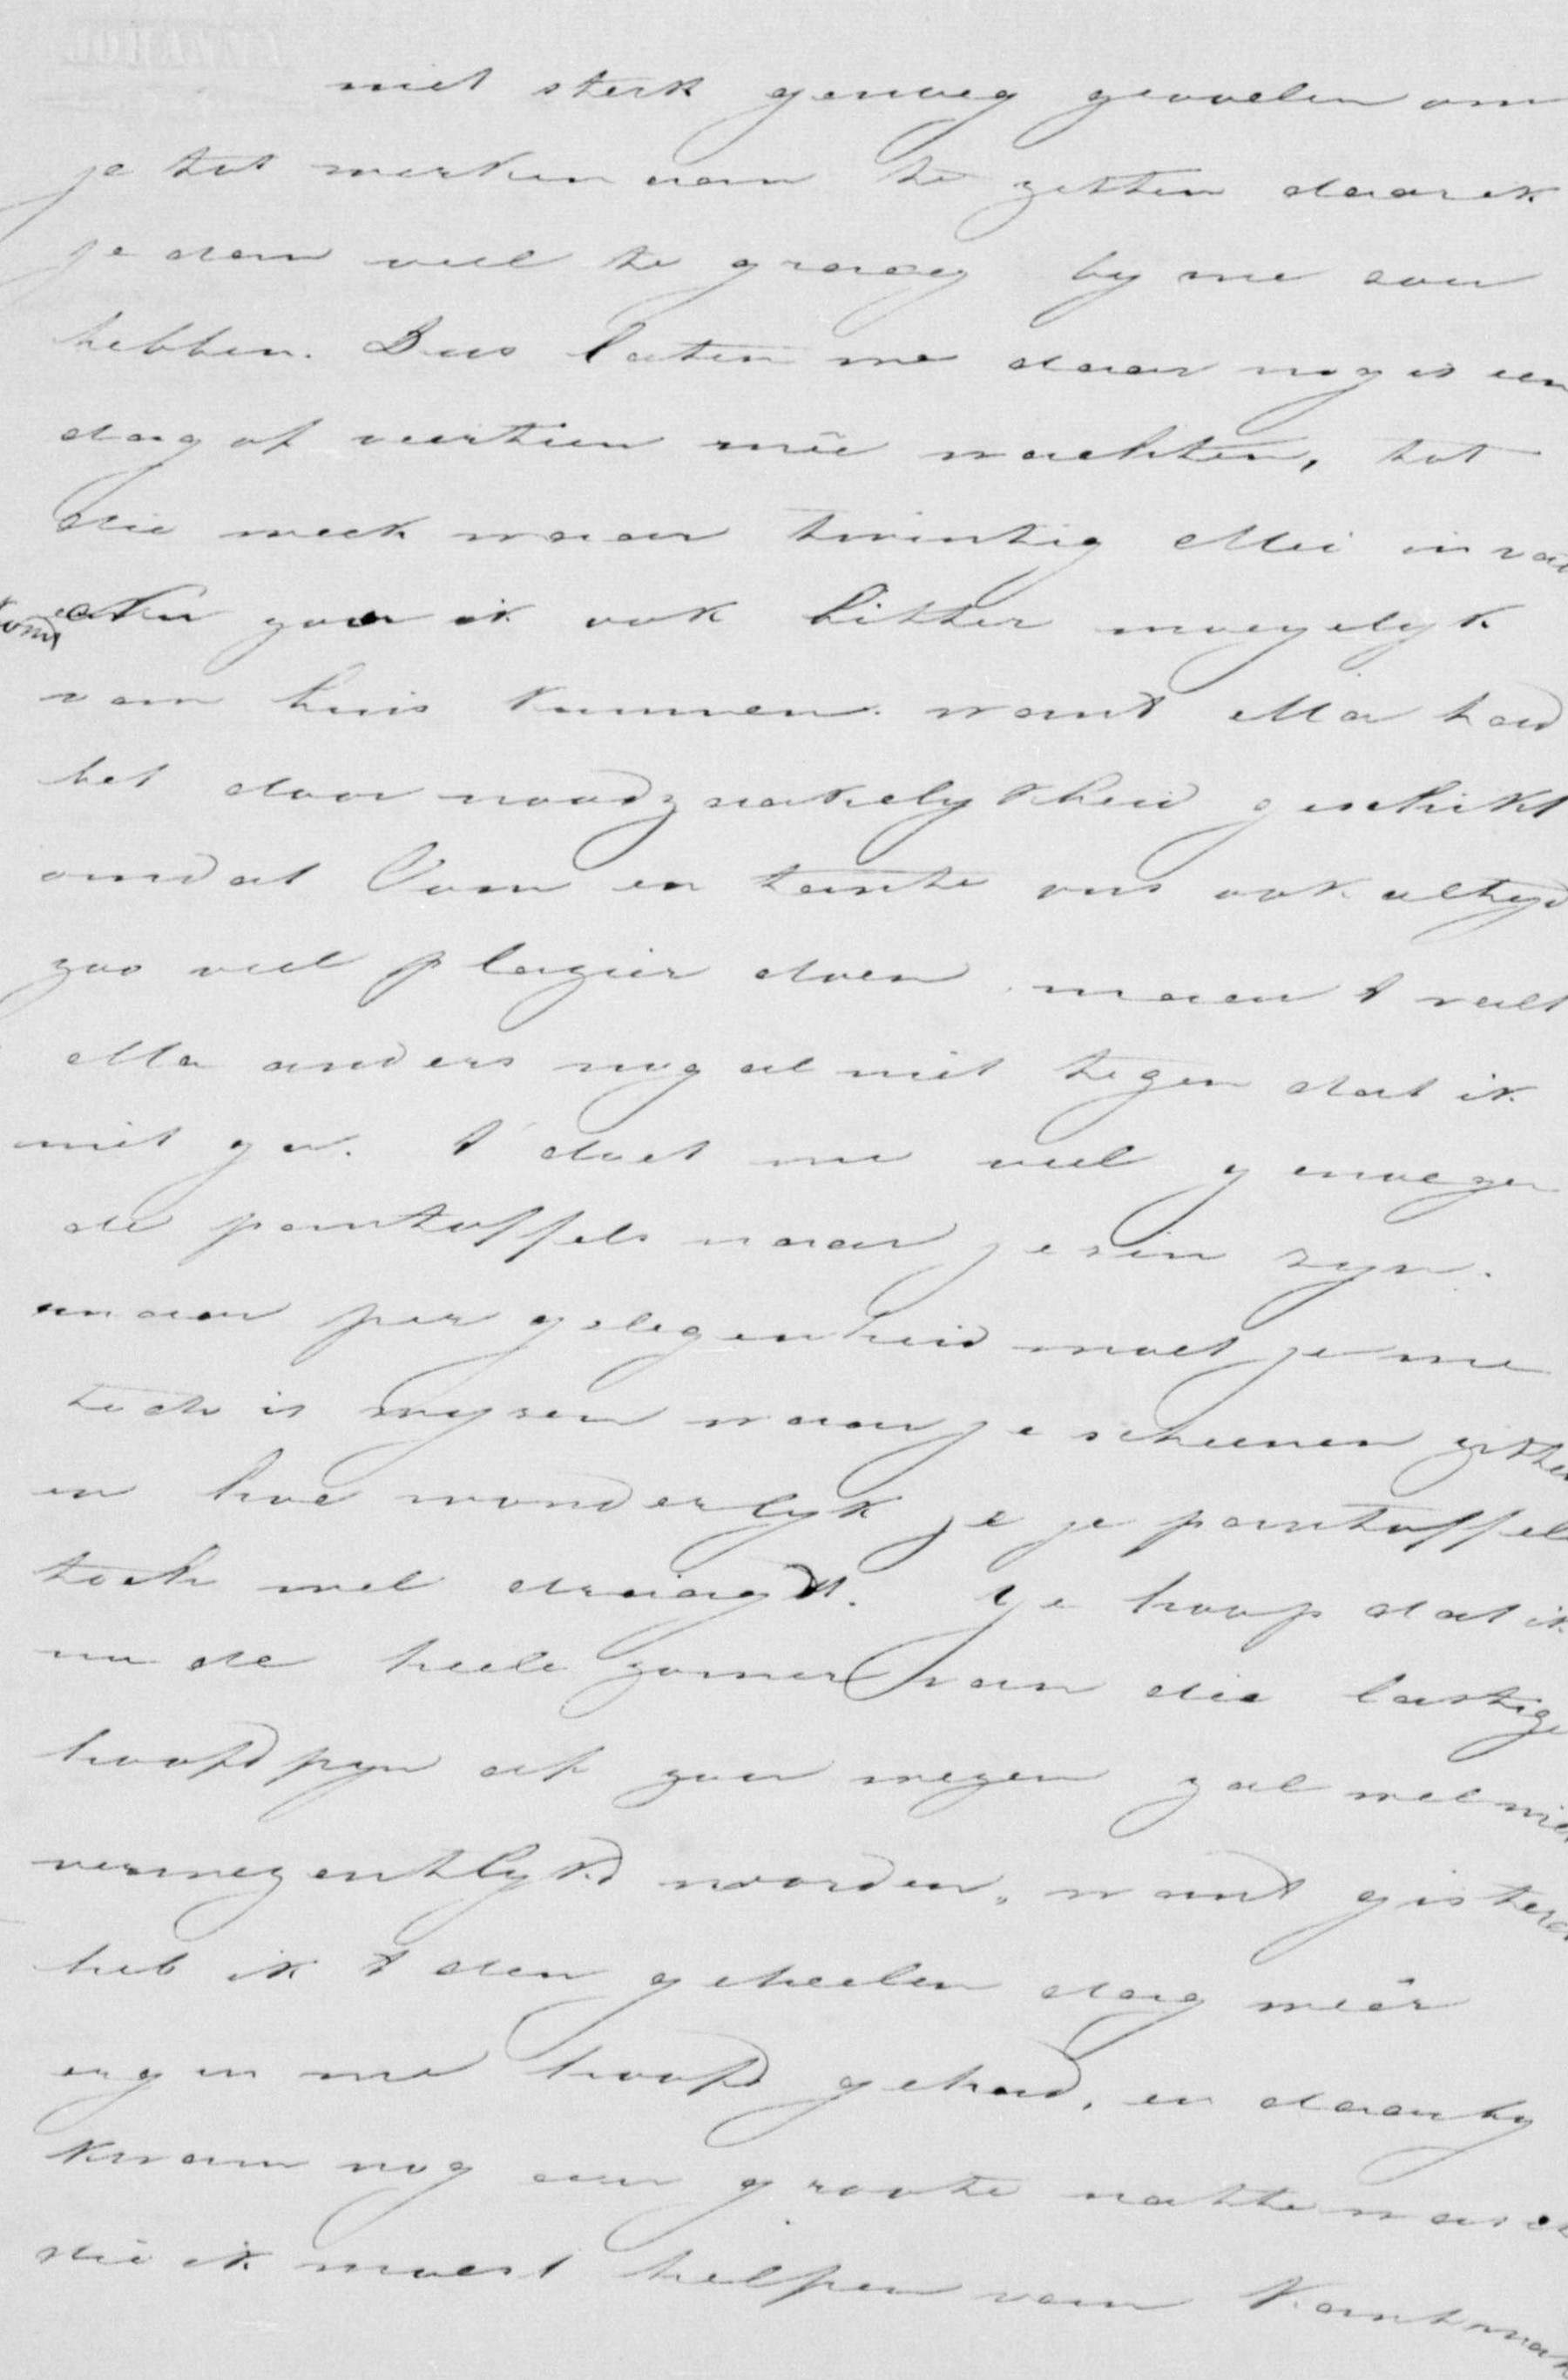 niet sterk genoeg gevoelen om
je tot werken aan te zetten daar ik
je dan veel te graag by me zou
hebben. Dus laten we daar nog es een
dag of veertien meê wachten, tot
die week waar twintig Mei in va
Nu zou ik ook bitter moeyelyk
van huis kunnen. want Ma had
het door noodzaakelykheid geschikt
omdat Oom en tante ons ook altyd
zoo veel plezier doen. maar t valt
Ma anders nog al niet tegen dat ik
niet ga. t doet me veel genoegen
de pantoffels naar je zin zyn.
maar per gelegenheid moet je me
toch is wyzen waar je scheenen zitten
en hoe wonderlyk je je pantoffel
toch wel draagdt. Je hoop dat ik
nu de heele zomer van die lastige
hoofdpyn af zou wezen zal wel nie
verwezentlykd worden, want gisteren
heb ik t den geheelen dag weêr
erg in me hoofd gehad, en daarby
kwam nog een groote natte was
die ik moest helpen van Kant